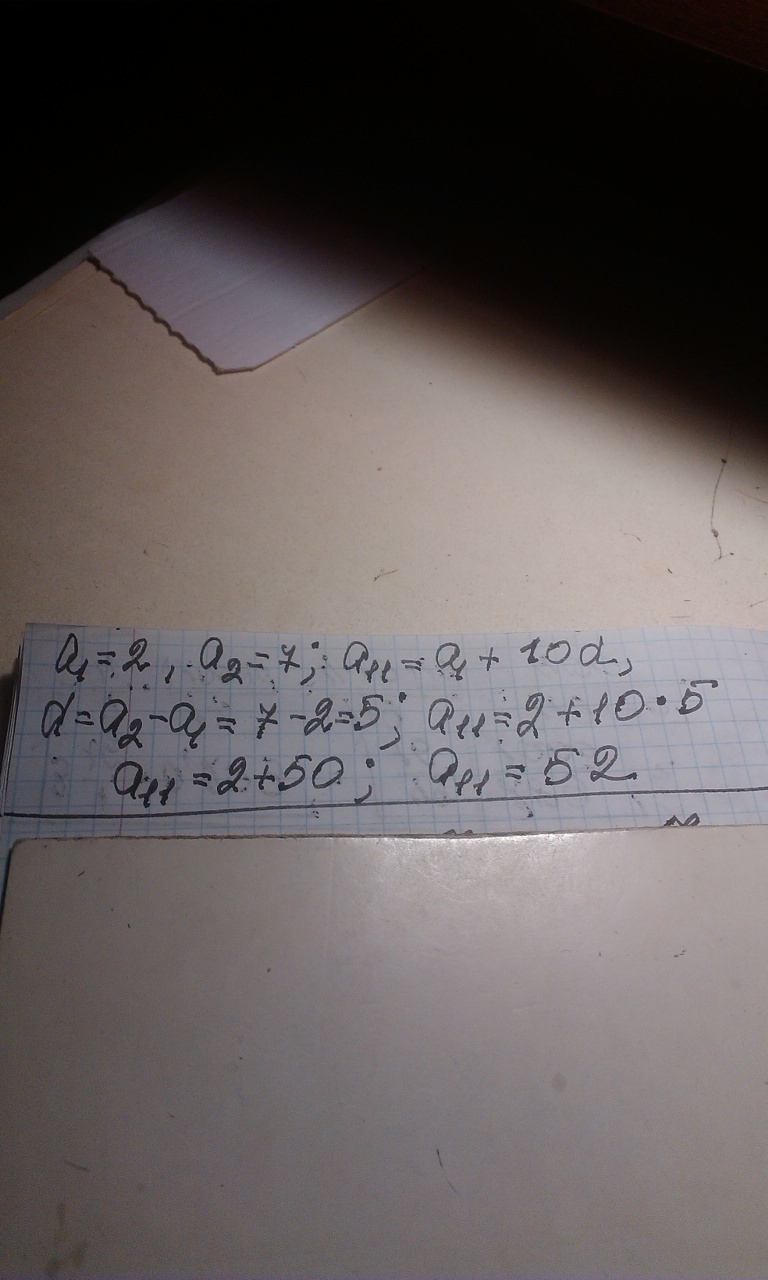 a₁=2, a₂=7; a₁₁=a₁+10d,
d=a₂-a₁=7-2=5; a₁₁=2+10·5
a₁₁=2+50; a₁₁=52